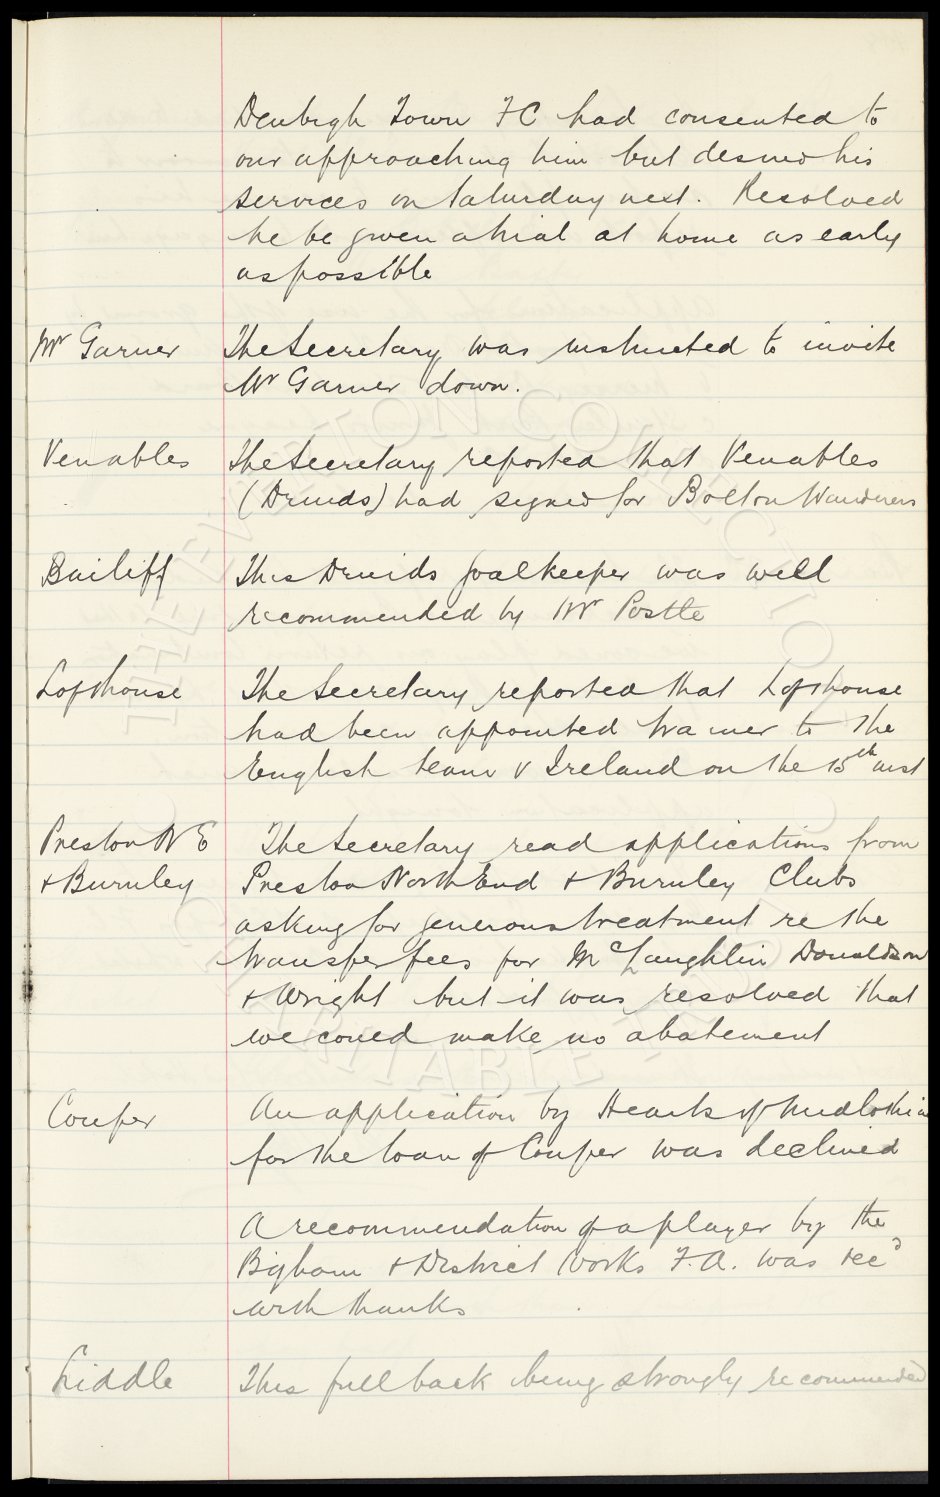 Denbigh Town FC had consented to
our approaching him but desired his
services on Saturday next. Resolved
he be given a trial at home as early
as possible
Mr Garner The Secretary was instructed to invite
Mr Garner down.
Venables The Secretary reported that Venables
(Druids) had signed for Bolton Wanderers
Bailiff This Druids goalkeeper was well
recommended by Mr Postle
Lofthouse The Secretary reported that Lofthouse
had been appointed trainer to the
English team v Ireland on the 15th inst
Preston N E The Secretary read applications from
+ Burnley Preston North End + Burnley Clubs
asking for generous treatment re the
transfer fees for McLaughlin Donaldson
+ Wright but it was resolved that
we could make no abatement
Couper An application by Hearts of Midlothian
for the loan of Couper was declined
A recommendation of a player by the
+ District Works F.A. was recd
with thanks
Liddle This full back being strongly recommended
THE EVERTON COLLECTION
CHARITABLE TRUST